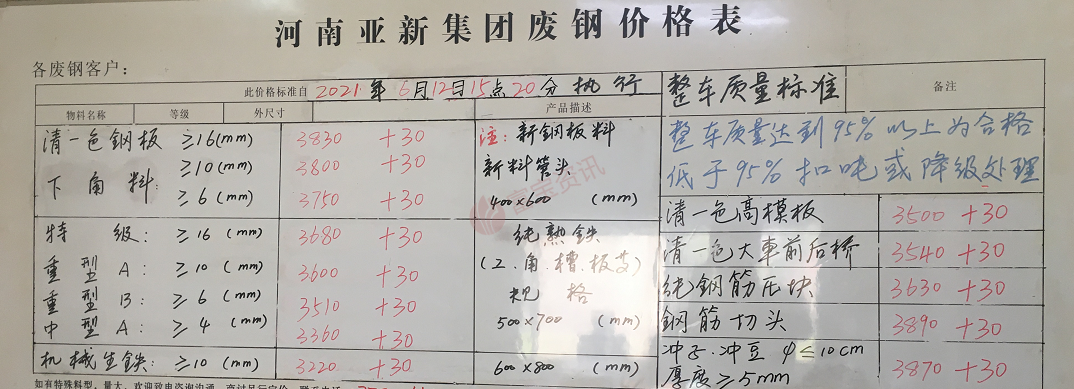 河南亚新集团废钢价格表
各废钢客户：
此价格标准自 2021年6月12日15点20分执行 整车质量标准 备注
物料名称 等级 外尺寸 产品描述
清一色鋼板 ≥16(mm) 3830 +30 注：新鋼板料 整车质量达到95%以上为合格
≥10(mm) 3800 +30 新料管头 低于95%扣吨或降级处理
下角料： ≥6(mm) 3750 +30 400×600 (mm)
清一色高模板 3500 +30
特级： ≥16 (mm) 3680 +30 纯熟鉄
清一色大車前后桥 3540 +30
重型A： ≥10 (mm) 3600 +30 (工.角.槽.板等)
纯钢筋压块 3630 +30
重型B： ≥6 (mm) 3510 +30 规格
中型A： ≥4 (mm) 3360 +30 500×700 (mm)
鋼筋切头 3890 +30
机械生鉄： ≥10 (mm) 3220 +30 600×800 (mm)
冲子.冲豆 φ≤10cm
厚度≥5mm 3870 +30
富宝资讯